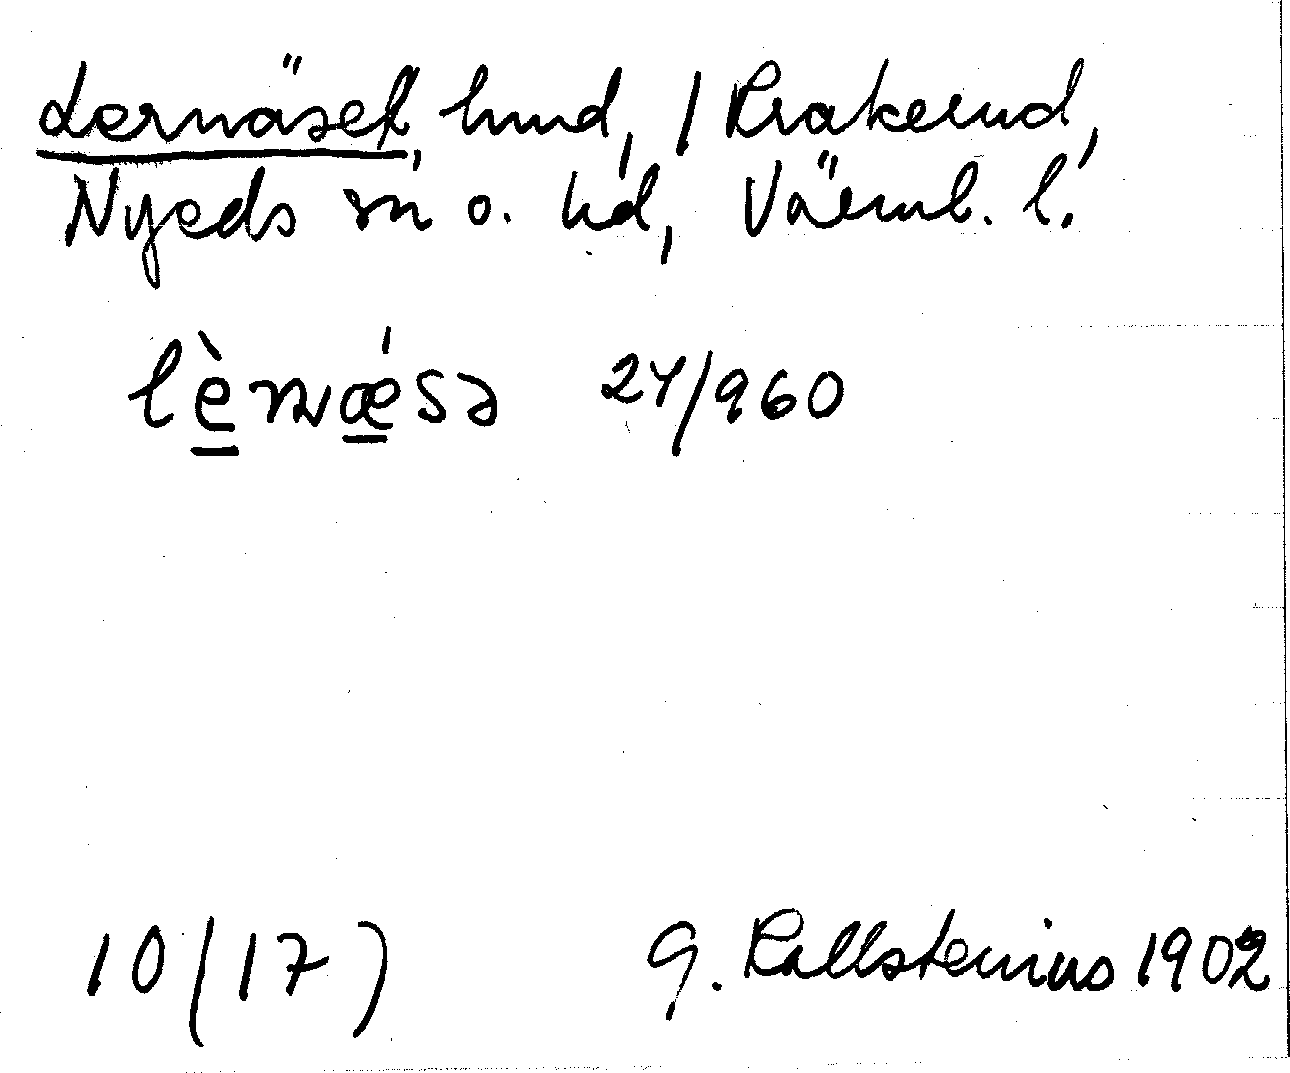 Lernäset, hmd, / Krakerud,
Nyeds sn o. hd, Värml. l.
lè̱rnǽ̱sə 24/960
10(17) G. Kallstenius 1902